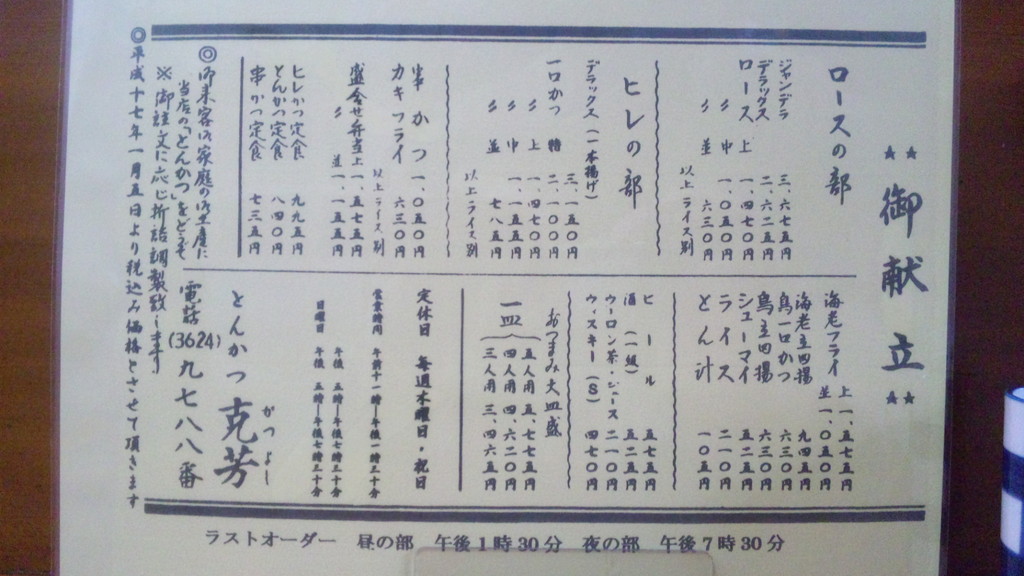 ★★ 御献立 ★★
ロースの部
ジャンデラ 三、六七五円
デラックス 二、六二五円
ロース 上 一、四七〇円
〃 中 一、〇五〇円
〃 並 六三〇円
以上ライス別
ヒレの部
デラックス(一本揚げ) 三、一五〇円
一口かつ 特 二、一〇〇円
〃 上 一、四七〇円
〃 中 一、一五五円
〃 並 七八五円
以上ライス別
串かつ 一、〇五〇円
カキフライ 六三〇円
以上ライス別
盛合せ弁当 上 一、五七五円
〃 並 一、一五五円
ヒレかつ定食 九九五円
とんかつ定食 八四〇円
串かつ定食 七三五円
海老フライ 上 一、五七五円
並 一、〇五〇円
海老立田揚 九四五円
鳥一口かつ 六三〇円
鳥立田揚 六三〇円
シューマイ 五二五円
ライス 二一〇円
とん汁 一〇五円
ビール 五七五円
酒(一級) 五二五円
ウーロン茶・ジュース 二一〇円
ウィスキー(S) 四七〇円
おつまみ大皿盛
一皿 五人用 五、七七五円
四人用 四、六二〇円
三人用 三、四六五円
定休日 毎週木曜日・祝日
営業時間 午前十一時三十分―午後一時三十分
午後 五時―午後七時三十分
日曜日 午後 五時―午後七時三十分
とんかつ 克芳
かつよし
電話(3624)九七八八番
◎御来客の御家庭の御土産に
当店の「とんかつ」をどうぞ
※御註文に応じ折詰調製致します
◎平成十七年一月五日より税込み価格とさせて頂きます
ラストオーダー 昼の部 午後1時30分 夜の部 午後7時30分